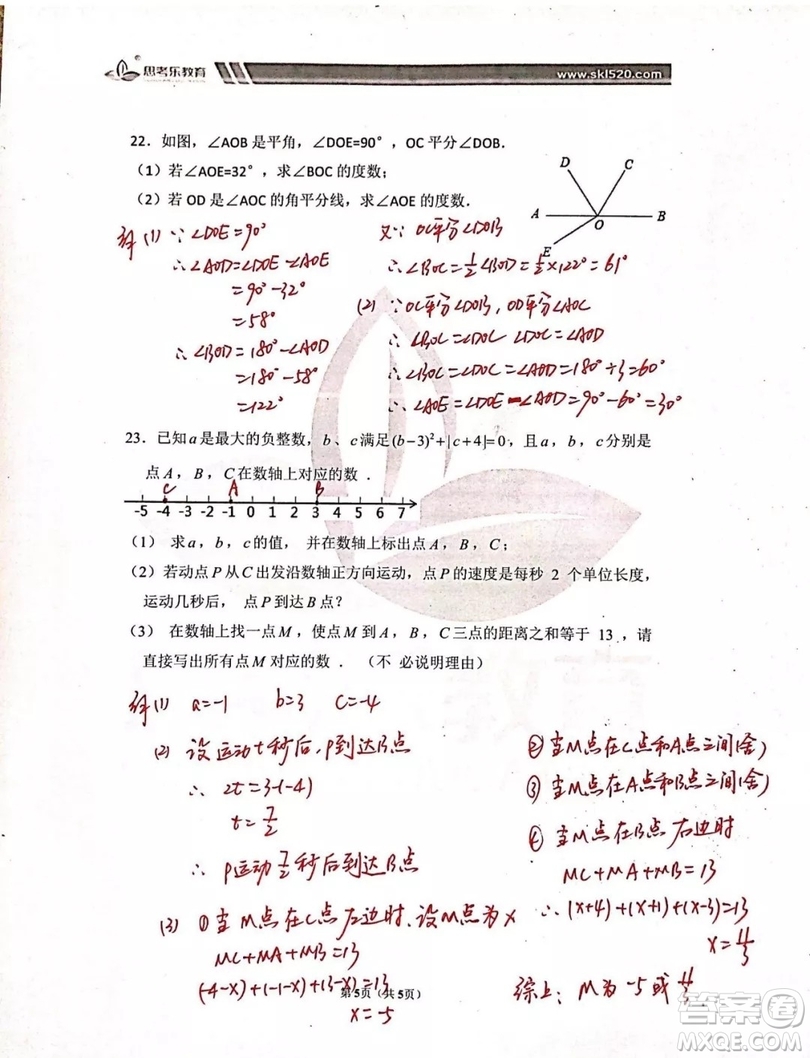 思考乐教育
www.skl520.com
22．如图，∠AOB 是平角，∠DOE=90°，OC 平分∠DOB．
（1）若∠AOE=32°，求∠BOC 的度数；
（2）若 OD 是∠AOC 的角平分线，求∠AOE 的度数．
D
C
A
O
B
E
解 (1) ∵ ∠DOE=90°
∴ ∠AOD=∠DOE-∠AOE
=90°-32°
=58°
∴ ∠BOD=180°-∠AOD
=180°-58°
=122°
又∵ OC平分∠DOB
∴ ∠BOC=½∠BOD=½×122°=61°
(2) ∵OC平分∠DOB, OD平分∠AOC
∴ ∠BOC=∠DOC ∠DOC=∠AOD
∴ ∠BOC=∠DOC=∠AOD=180°÷3=60°
∴ ∠AOE=∠DOE-∠AOD=90°-60°=30°
23．已知a是最大的负整数，b、c满足(b-3)²+|c+4|=0，且a，b，c分别是
点A，B，C在数轴上对应的数．
C A B
-5 -4 -3 -2 -1 0 1 2 3 4 5 6 7
（1） 求a，b，c的值， 并在数轴上标出点A，B，C；
（2）若动点P从C出发沿数轴正方向运动，点P的速度是每秒 2 个单位长度，
运动几秒后， 点P到达B点？
（3） 在数轴上找一点M，使点M到A，B，C三点的距离之和等于 13 ，请
直接写出所有点M对应的数． （不 必说明理由）
解(1) a=-1 b=3 c=-4
(2) 设运动t秒后, P到达B点
∴ 2t=3-(-4)
t=7/2
∴ P运动7/2秒后到达B点
(3) ①当M点在C点左边时, 设M点为x
MC+MA+MB=13
(-4-x)+(-1-x)+(3-x)=13
x=-5
②当M点在C点和A点之间(舍)
③当M点在A点和B点之间(舍)
④当M点在B点右边时
MC+MA+MB=13
∴(x+4)+(x+1)+(x-3)=13
x=11/3
综上: M为-5或11/3
第5页（共5页）
答案圈
MXQE.COM